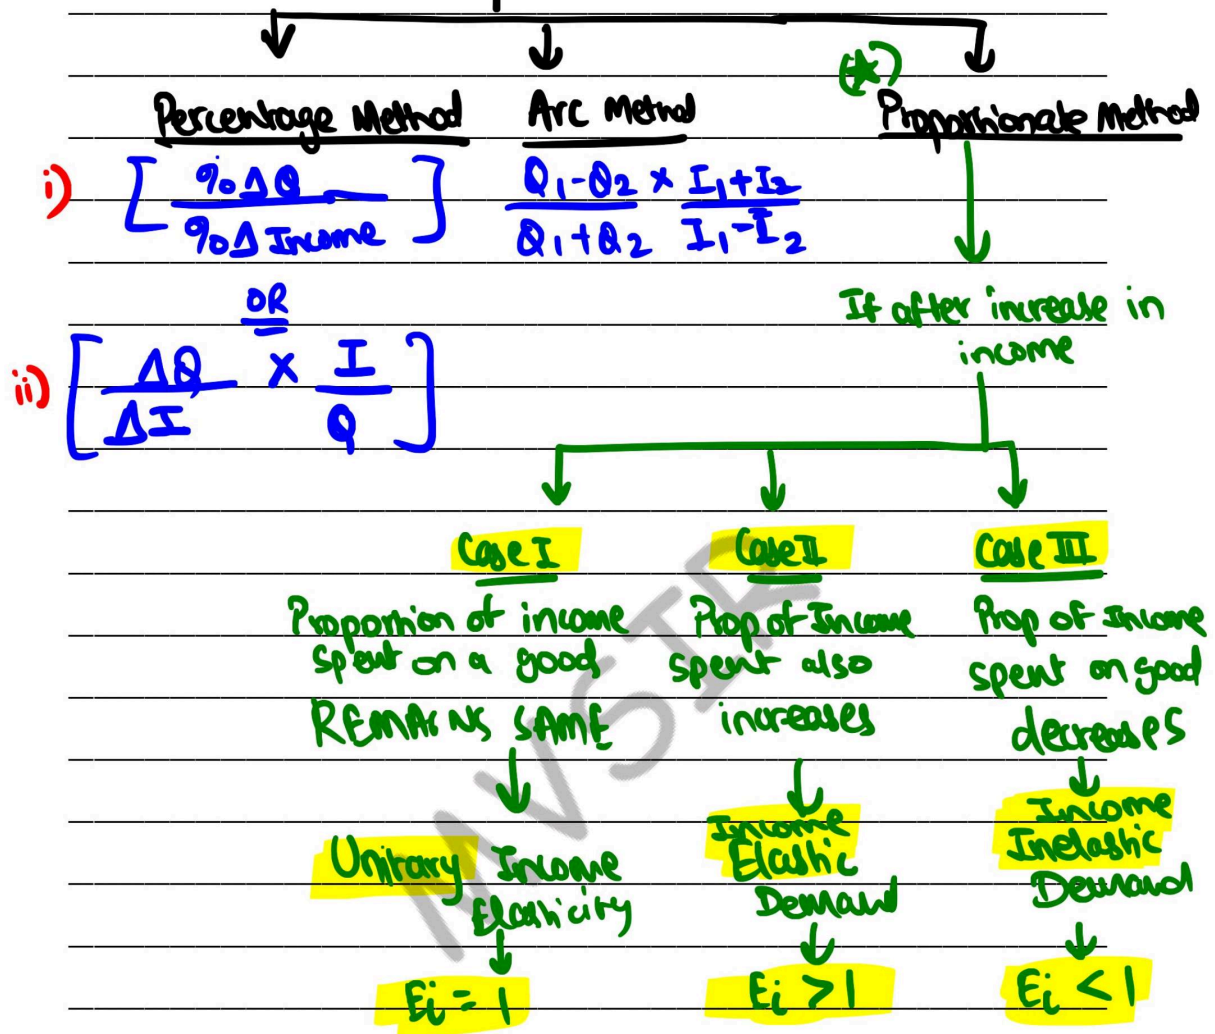 (★)
Percentage Method
Arc Method
Proportionate Method
i) [ %ΔQ / %Δ Income ]
Q1-Q2 / Q1+Q2 × I1+I2 / I1-I2
OR
ii) [ ΔQ / ΔI × I / Q ]
If after increase in
income
Case I
Proportion of income
spent on a good
REMAINS SAME
Unitary Income
Elasticity
Ei = 1
Case II
Prop of Income
spent also
increases
Income
Elastic
Demand
Ei > 1
Case III
Prop of Income
spent on good
decreases
Income
Inelastic
Demand
Ei < 1
MVSIR